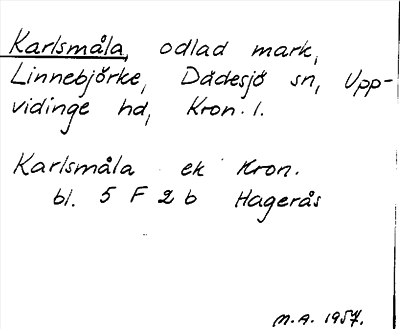 Karlsmåla, odlad mark,
Linnebjörke, Dädesjö sn, Upp-
vidinge hd, Kron. l.
Karlsmåla ek Kron.
bl. 5 F 2 b Hagerås
M.A. 1957.